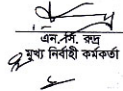 এন. সি. রুদ্র
মুখ্য নিৰ্বাহী কৰ্মকৰ্তা